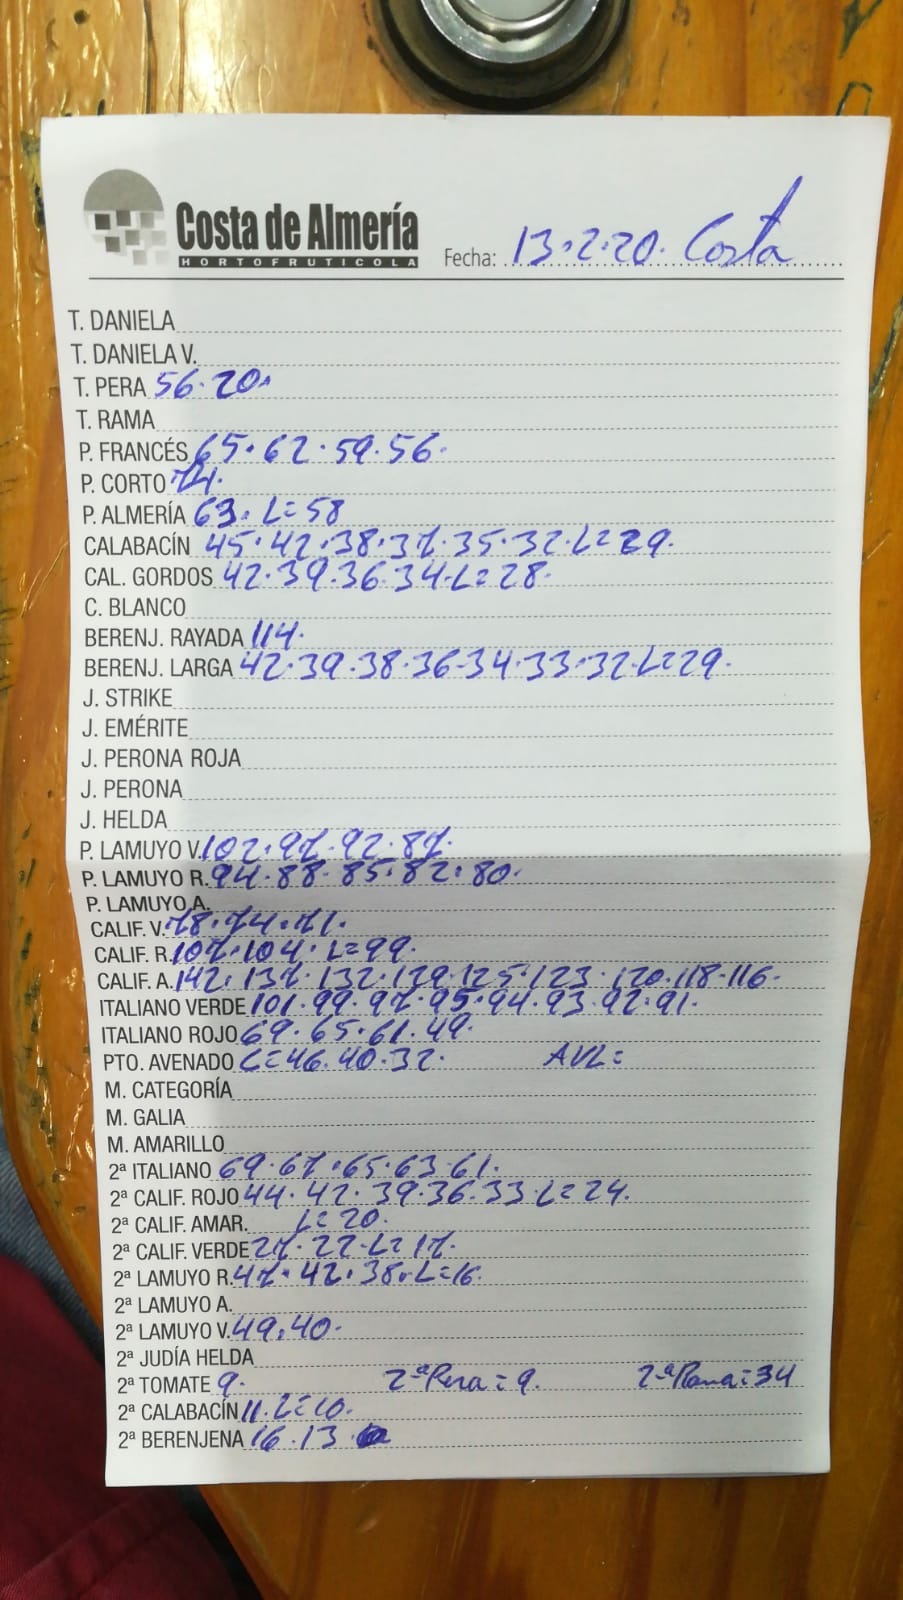 Costa de Almería
HORTOFRUTICOLA
Fecha: 13.2.20. Costa
T. DANIELA
T. DANIELA V.
T. PERA 56.20.
T. RAMA
P. FRANCÉS 65.62.59.56.
P. CORTO 74.
P. ALMERÍA 63. L=58
CALABACÍN 45.42.38.37.35.32.L=29.
CAL. GORDOS 42.39.36.34.L=28.
C. BLANCO
BERENJ. RAYADA 114.
BERENJ. LARGA 42.39.38.36.34.33.32.L=29.
J. STRIKE
J. EMÉRITE
J. PERONA ROJA
J. PERONA
J. HELDA
P. LAMUYO V. 102.97.92.87.
P. LAMUYO R. 94.88.85.82.80.
P. LAMUYO A.
CALIF. V. 78.74.71.
CALIF. R. 107.104. L=99.
CALIF. A. 142.137.132.129.125.123.120.118.116.
ITALIANO VERDE 101.99.97.95.94.93.92.91.
ITALIANO ROJO 69.65.61.49.
PTO. AVENADO L=46.40.32. AVL=
M. CATEGORÍA
M. GALIA
M. AMARILLO
2ª ITALIANO 69.67.65.63.61.
2ª CALIF. ROJO 44.42.39.36.33 L=24.
2ª CALIF. AMAR. L=20.
2ª CALIF. VERDE 27.22.L=17.
2ª LAMUYO R. 47.42.38.L=16.
2ª LAMUYO A.
2ª LAMUYO V. 49.40.
2ª JUDÍA HELDA
2ª TOMATE 9. 2ªPera=9. 2ªRama=34
2ª CALABACÍN 11.L=10.
2ª BERENJENA 16.13